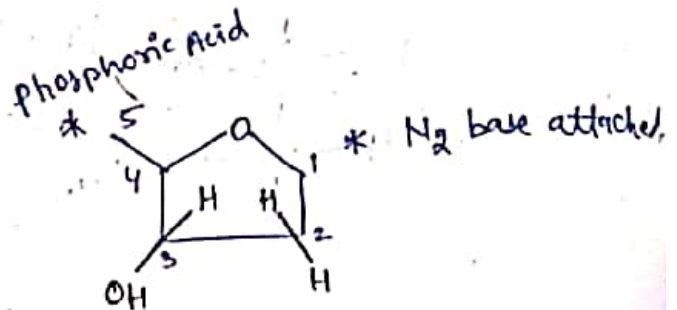 Phosphoric Acid
* 5
O
* N2 base attached.
4
1
H H
3
2
OH
H